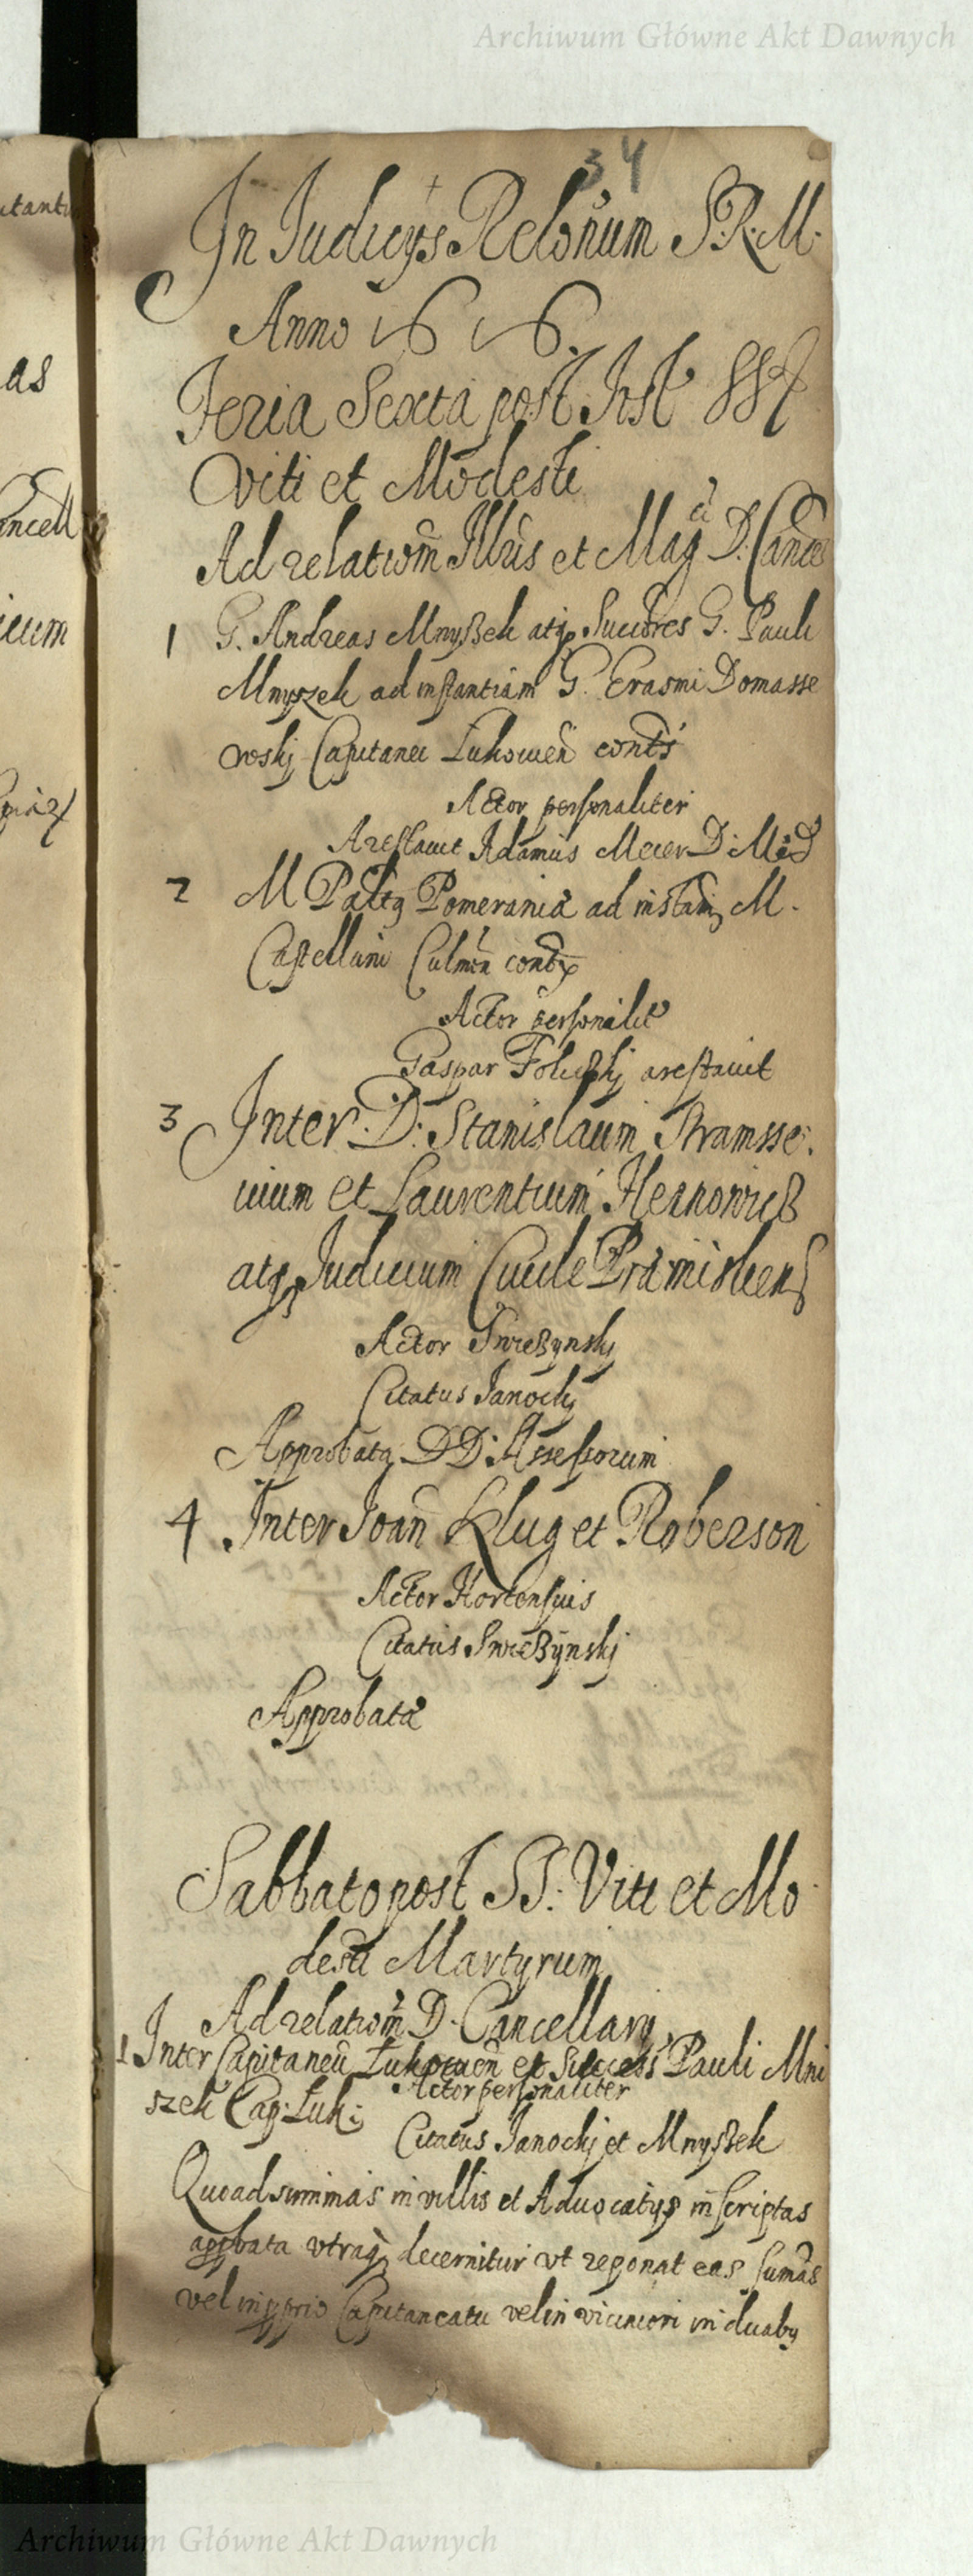 Archiwum Główne Akt Dawnych
34
In Iudicÿs Relõnum S.R.M.
Anno 1616.
Feria Sexta post Fest SSt
Viti et Modesti
Ad relatiom̃ Illris et Mag D. Cance
1 G. Andreas Mnyszek atq Succõres G. Pauli
Mnyszek ad instantiam G. Erasmi Domasse
wskj Capitanei Lukowien conts
Actor personaliter
Arestavit Adamus Meier D. Med
2 M Palta Pomerania ad instan M.
Castellani Culmen cont
Actor personalit
Gaspar arestavit
3 Inter D. Stanislaum Stramsse.
uium et Laurentium Hernowicz
atq Iudicium Civile Præmislien
Actor Swiezynskj
Citatus Janockj
Approbata DD. Assessorum
4 Inter Joan Klug et Roberson
Actor Hortensius
Citatus Swiezÿnskj
Approbata
Sabbato post SS. Viti et Mo
desti Martyrum
Ad relatiom̃ D. Cancellarÿ
1 Inter Capitaneũ Lukowien et Success Pauli Mni
Actor personaliter
szek Cap. Luk:
Citatus Janockj et Mnyszek
Quoad summas in villis et Advocatys inscriptas
appbata utraq decernitur ut reponat eas sumas
vel in pprio Capitaneatu vel in viciniori in duabq
utant
as
ancell
icum
Archiwum Główne Akt Dawnych